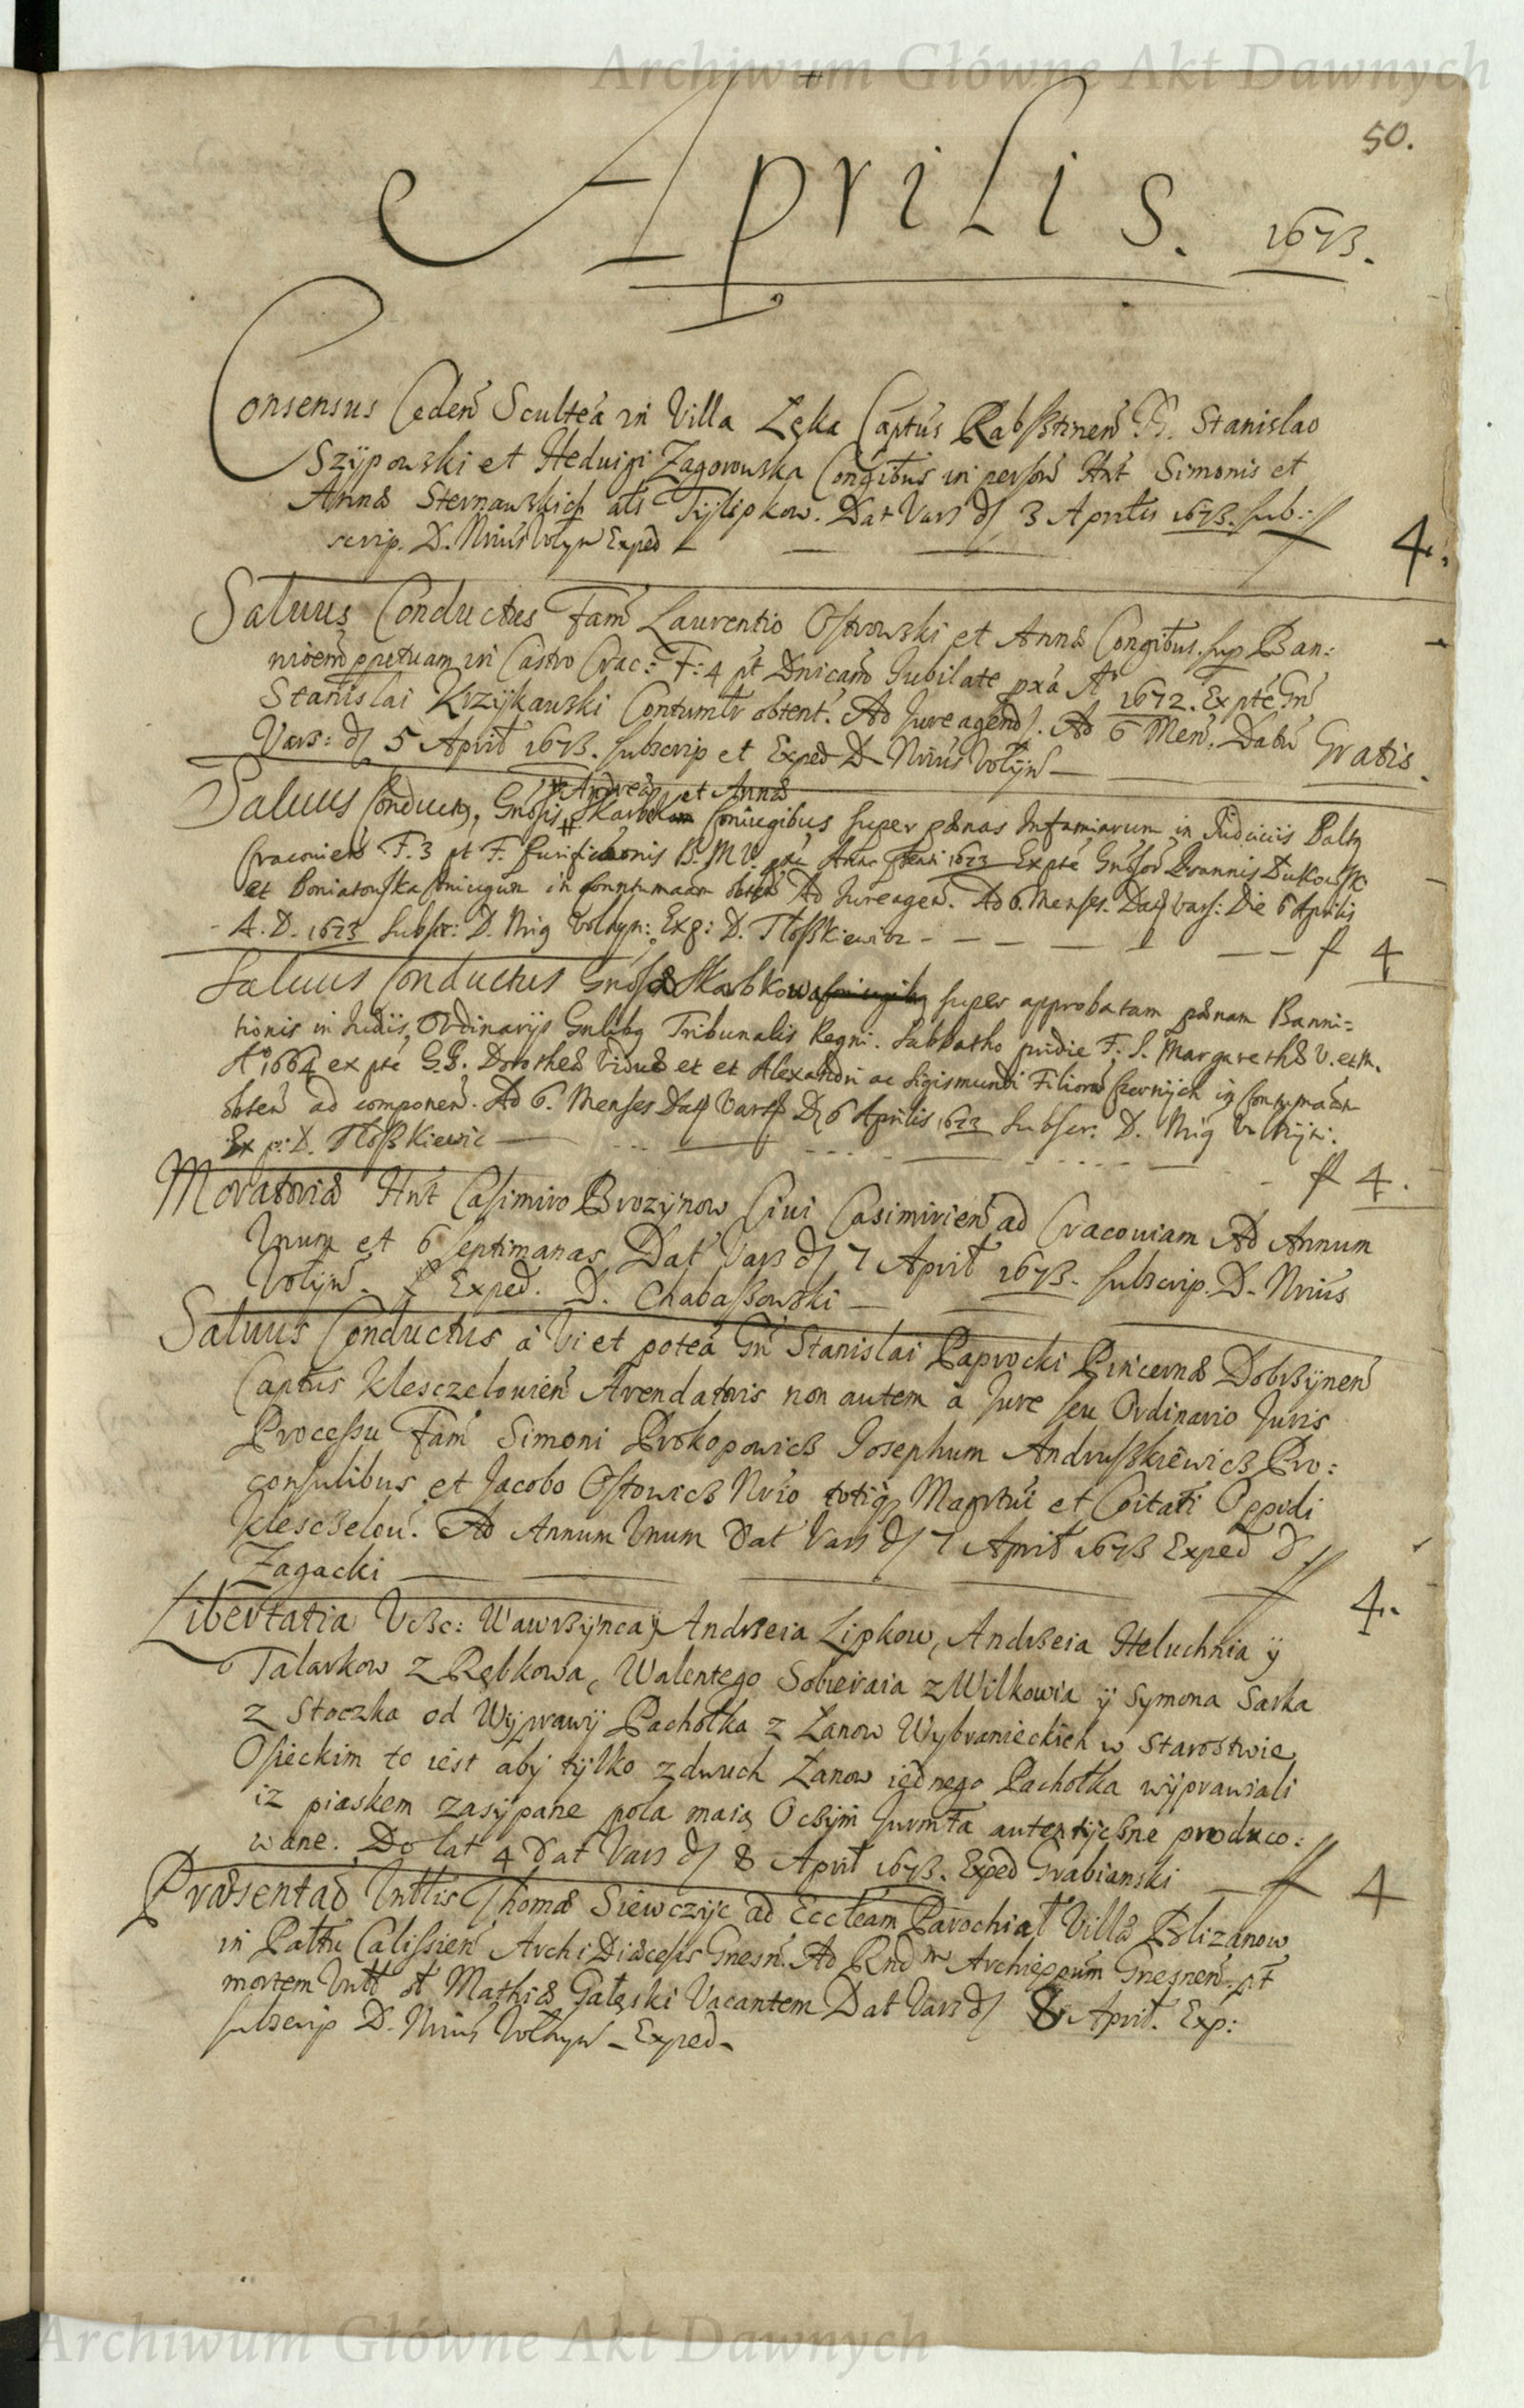 Archiwum Główne Akt Dawnych
50.
Aprilis. 1673.
Consensus Ceden Scultea in Villa Łęka Captus Rabsstinen G. Stanislao
Szÿpowski et Heduigi Zagorowska Congibus in person Hnt Simonis et
Annæ Sternawskich als Tÿlipkow. Dat Vars d 3 Aprilis 1673. sub:
scrip. D. Nrius Volÿn Exped — f 4.
Saluus Conductus Fam Laurentio Ostrowski et Annæ Congibus. sup Ban:
nioem ppetuam in Castro Crac: F: 4 pt Dnicam Jubilate pxa A° 1672. Ex pte Gn
Stanislai Krzÿkawski Contumtr obtent. Ad Jure agend. Ad 6 Men. Dat
Vars: d 5 April 1673. subscrip et Exped D. Nrius Volÿn — Gratis.
Andreæ et Annæ
Saluus Conductus, Gnosis Skarbkom Coniugibus super pænas Infamiarum in Judiciis Palty
Cracovien F. 3 pt F. Purificaonis B. M V. Anni pntis 1673 Ex pte Gnosor Joannis Dukowski
et Poniatouska Coniugum in Conntumaam obten Ad Jure agen. Ad 6. Menses. Dat Vars: Die 6 Aprilis
A. D. 1673 Subscr: D. Nrig Volhyn: Exp: D. Tłosskiewicz — f 4
Saluus Conductus Gnosæ Skarbkowa super approbatam pænam Banni=
tionis in Judiis, Ordinarijs Gnlibg Tribunalis Regni. Sabbatho pridie F. S. Margarethæ V. et M.
A° 1664 ex pte G.G. Dorotheæ Viduæ et et Alexandri ac Sigismundi Filiorum Czernijch in Contumaam
obten ad componen. Ad 6. Menses Dat Vars D 6 Aprilis 1673 Subscr: D. Nrig Volhÿn:
Exp: D. Tłosskiewic — f 4.
Moratoriæ Hnt Casimiro Brozÿnow Ciui Casimirien ad Cracouiam Ad Annum
Vnum et 6 septimanas Dat Vars d 7 April 1673. subscrip. D. Nrius
Volÿn. Exped. D. Chabassowski —
Saluus Conductus à Vi et potea Gn Stanislai Paprocki Pincernæ Dobrzÿnen
Captus Klesczelouien Arendatoris non autem a Jure seu Ordinario Juris
Processu Fam Simoni Prokopowicz Josephum Andrusskiewicz Pro:
consulibus et Jacobo Ostowicz Nrio totiq Magrtui et Coitati Oppidi
Klesczelou. Ad Annum Vnum Dat Vars d 7 April 1673 Exped D
Zagacki — f 4.
Libertatia Vczc: Wawrzÿnca ÿ Andrzeia Lipkow, Andrzeia Heluchnia ÿ
Talarkow z Rębkowa, Walentego Sobieraia z Wilkowia ÿ Symona Saska
z Stoczka od Wÿprawÿ Pachołka z Łanow Wybranieckich w Starostwie
Osieckim to iest aby tÿlko z dwuch Łanow iednego Pachołka wÿprawiali
iz piaskem zasÿpane pola maią O czÿm Jurmta autentÿczne produco:
wane. Do lat 4 Dat Vars d 8 April 1673. Exped Grabianski — f 4
Præsentao Vnttis Thomæ Siewczÿc ad Eccleam Parochial Villæ Blizanow
in Pattu Calissien Archi Diæcesis Gnesn. Ad Rndm Archieppum Gnesnen. pt
mortem Vntt ol Mathiæ Gałęski Vacantem Dat Vars d 8 April. Exp:
subscrip D. Nrius Volhyn — Exped —
Archiwum Główne Akt Dawnych